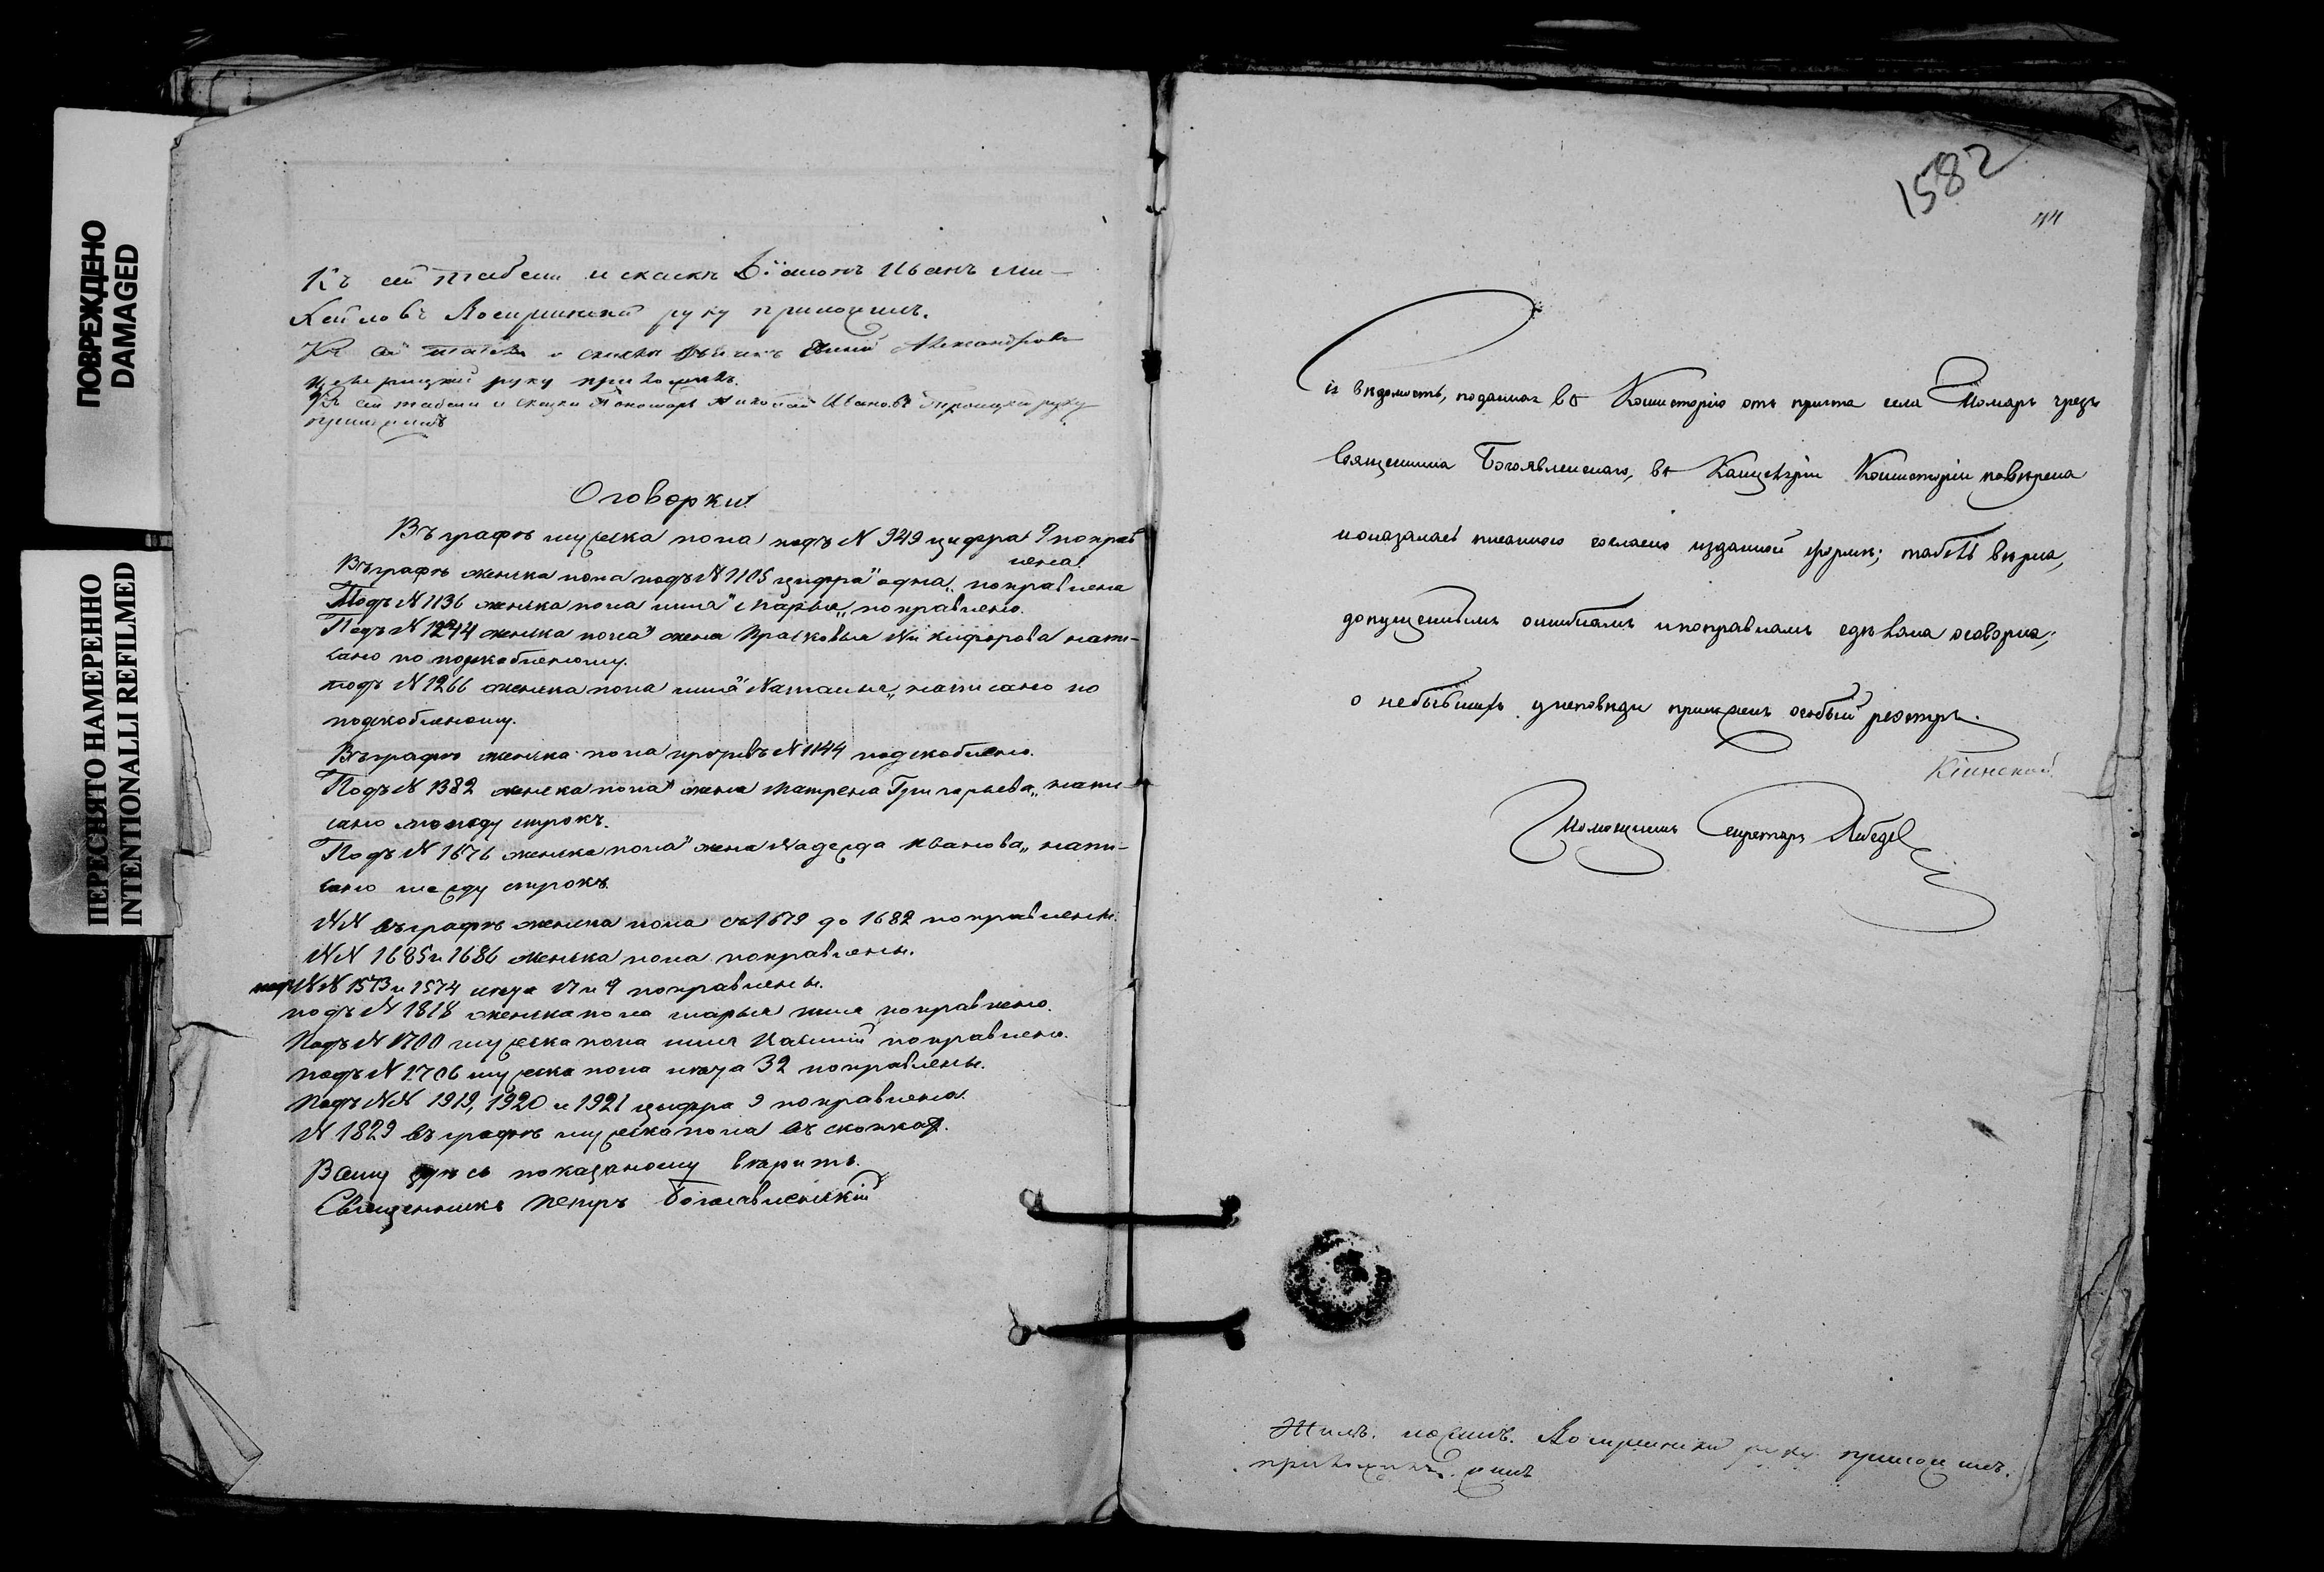 ПОВРЕЖДЕНО
DAMAGED
ПЕРЕСНЯТО НАМЕРЕННО
INTENTIONALLI REFILMED
Къ сей табели и сказкѣ Діаконъ Иванъ Ми-
хайловъ руку приложилъ.
Къ сей табели и сказкѣ Александровъ
руку приложилъ.
Къ сей табели и сказки Пономарь Николай Ивановъ Троицкій руку
приложилъ
Оговорки
Въ графѣ мужеска пола подъ N 949 цифра 9 поправ
лена
Въ графѣ женска пола подъ N 1105 цифра "одна" поправлена
Подъ N 1136 женска пола имя "Марья" поправлено.
Подъ N 1244 женска пола "жена Прасковья Никифорова напи-
сано по подскобленому.
подъ N 1266 женска пола имя "Наталья" написано по
подскобленому.
Въ графѣ женска пола N 1144 подскоблено.
Подъ N 1382 женска пола "жена Матрена Григорьева" напи-
сано между строкъ.
Подъ N 1676 женска пола "жена Надежда Иванова" напи-
сано между строкъ.
NN въ графѣ женска пола съ 1679 до 1682 поправлены.
NN 1685 и 1686 женска пола поправлены.
подъ NN 1573 и 1574 лѣта 17 и 9 поправлены.
подъ N 1818 женска пола Марья имя поправлено.
Подъ N 1700 мужеска пола имя поправлено.
подъ N 1706 мужеска пола лѣта 32 поправлены.
Подъ NN 1919, 1920 и 1921 цифра 9 поправлена.
N 1829 въ графѣ мужеска пола въ скобкахъ.
Всему здѣсь показаному вѣрить.
Священникъ Петръ Богоявленскій
1582
44
Сія вѣдомость, поданная въ Консисторію отъ причта села чрезъ
священника Богоявленскаго, въ Канцеляріи Консисторіи повѣрена
и оказалась писанною согласно изданной формѣ; табель вѣрна,
допущеннымъ ошибкамъ и поправкамъ сдѣлана оговорка;
о небывшихъ у исповѣди приложенъ особый реэстръ.
Помощникъ Секретаря Лебедев
руку приложилъ.